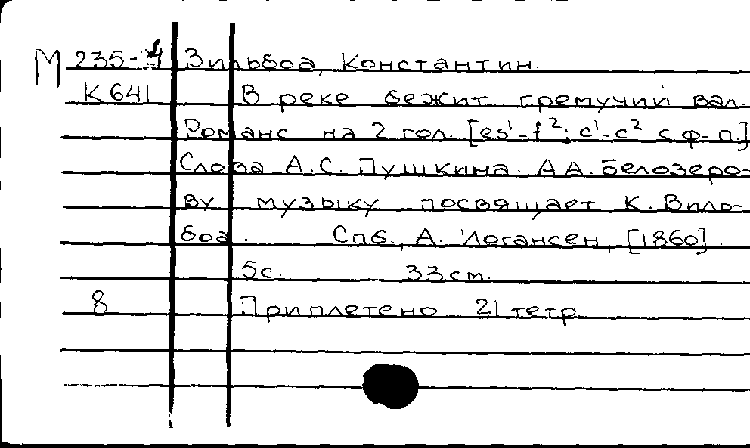 М 235-4 Зильбоа, Константин.
К 641 В реке бежит гремучий вал.
Романс на 2 гол. [es¹-f²; c¹-c² с ф-п.]
Слова А.С. Пушкина. А.А. Белозеро-
ву музыку посвящает К. Виль-
боа. Спб., А. Иогансен, [1860].
5с. 33cm.
8 Приплетено 21 тетр.